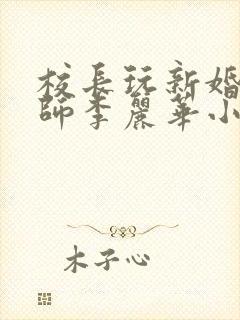 校長玩新婚
師李麗華小
木子心